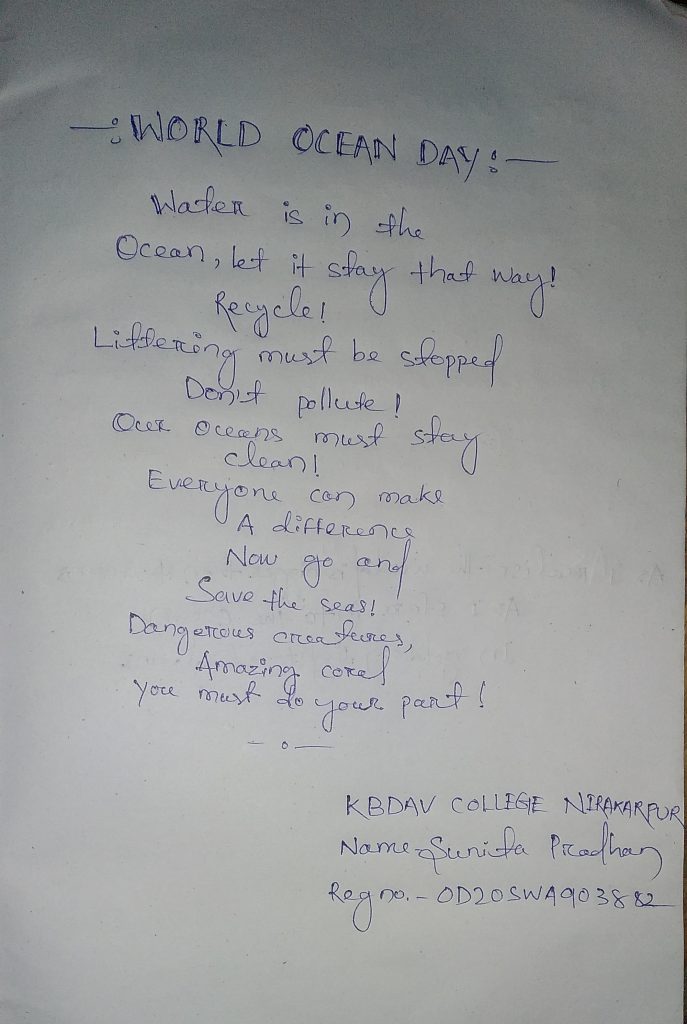 —: WORLD OCEAN DAY :—
Water is in the
Ocean, let it stay that way!
Recycle!
Littering must be stopped
Don't pollute!
Our oceans must stay
clean!
Everyone can make
A difference
Now go and
Save the seas!
Dangerous creatures,
Amazing coral
You must do your part!
— o —
KBDAV COLLEGE NIRAKARPUR
Name - Sunita Pradhan
Reg no. - OD20SWA903882